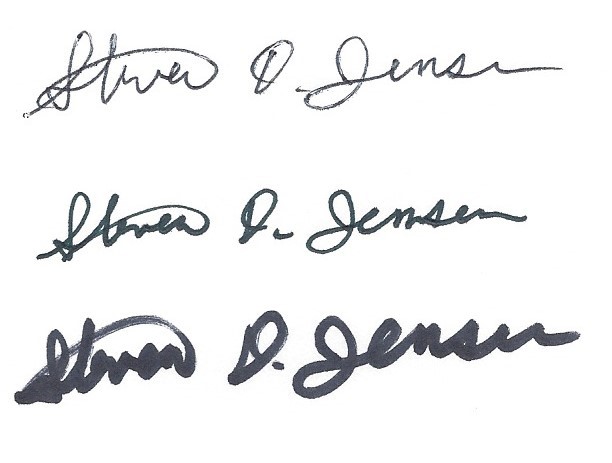 Steven D. Jensen
Steven D. Jensen
Steven D. Jensen